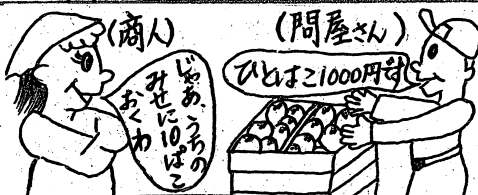 (商人)
じゃあ、うちの
みせに10ぱこ
おくわ
(問屋さん)
ひとはこ1000円です